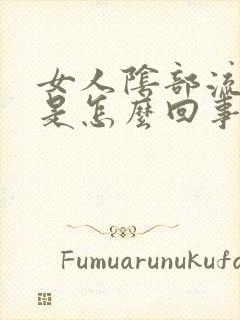 女人陰部流
是怎麼回事
Fumuarunukufa